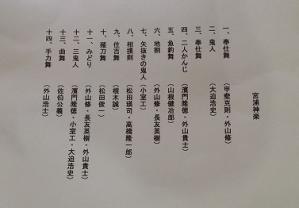 宮浦神楽
一、奉仕舞 （甲斐克則・外山修）
二、鬼人 （大迫浩史）
三、奉仕舞
四、二人かんじ （濱門隆徳・外山貴士）
五、魚釣舞 （山根健治郎）
六、地割 （外山修・長友英樹）
七、矢抜きの鬼人 （小室工）
八、相撲剣 （松田瑛司・高橋隆一郎）
九、住吉舞 （榎木誠）
十、薙刀舞 （松田俊一）
十一、みどり （外山修・長友英樹・外山貴士）
十二、三鬼人 （濱門隆徳・小室工・大迫浩史）
十三、曲舞 （佐伯公義）
十四、手力舞 （外山浩士）